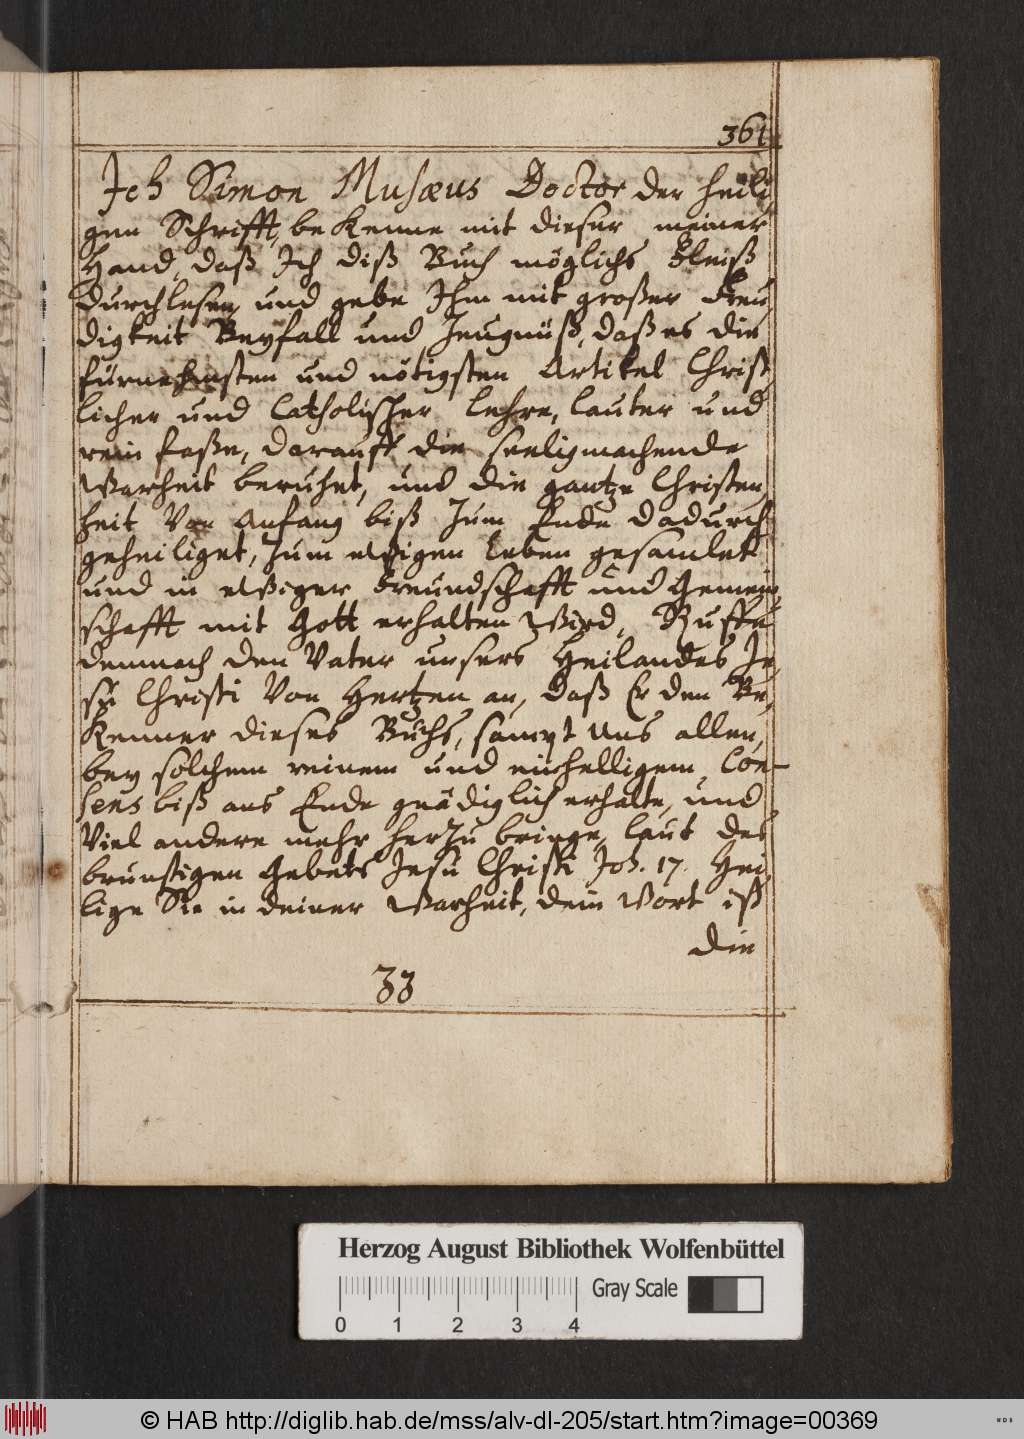 361.
Ich Simon Musæus Doctor der heili,
gen Schrifft, bekenne mit dieser meiner
Hand, daß Ich diß Buch möglichs fleiß
durchlesen, und gebe Ihm mit großer freu,
digkeit Beyfall und Zeugnüß, daß es die
fürnehmsten und nötigsten Artikel Christ,
licher und Catholischer Lehre, lauter und
rein faße, darauff die seeligmachende
Warheit beruhet, und die gantze Christen,
heit Von Anfang biß Zum Ende dadurch
geheiliget, Zum ewigen Leben gesamlet
und in ewiger freundschafft und Gemein,
schafft mit Gott erhalten Wird, Ruffe
demnach den Vater unsers Heilandes Je,
su Christi Von Hertzen an, daß Er den Be,
kenner dieses Buchs, sampt Uns allen,
bey solchem reinem und einhelligem Con-
sens biß ans Ende gnädiglich erhalte, und
Viel andere mehr herzu bringe, laut des
brunstigen Gebets Jesu Christi Joh. 17. Hei,
lige Sie in deiner Warheit, dein Wort ist
die
Zz
Herzog August Bibliothek Wolfenbüttel
Gray Scale
0 1 2 3 4
© HAB http://diglib.hab.de/mss/alv-dl-205/start.htm?image=00369